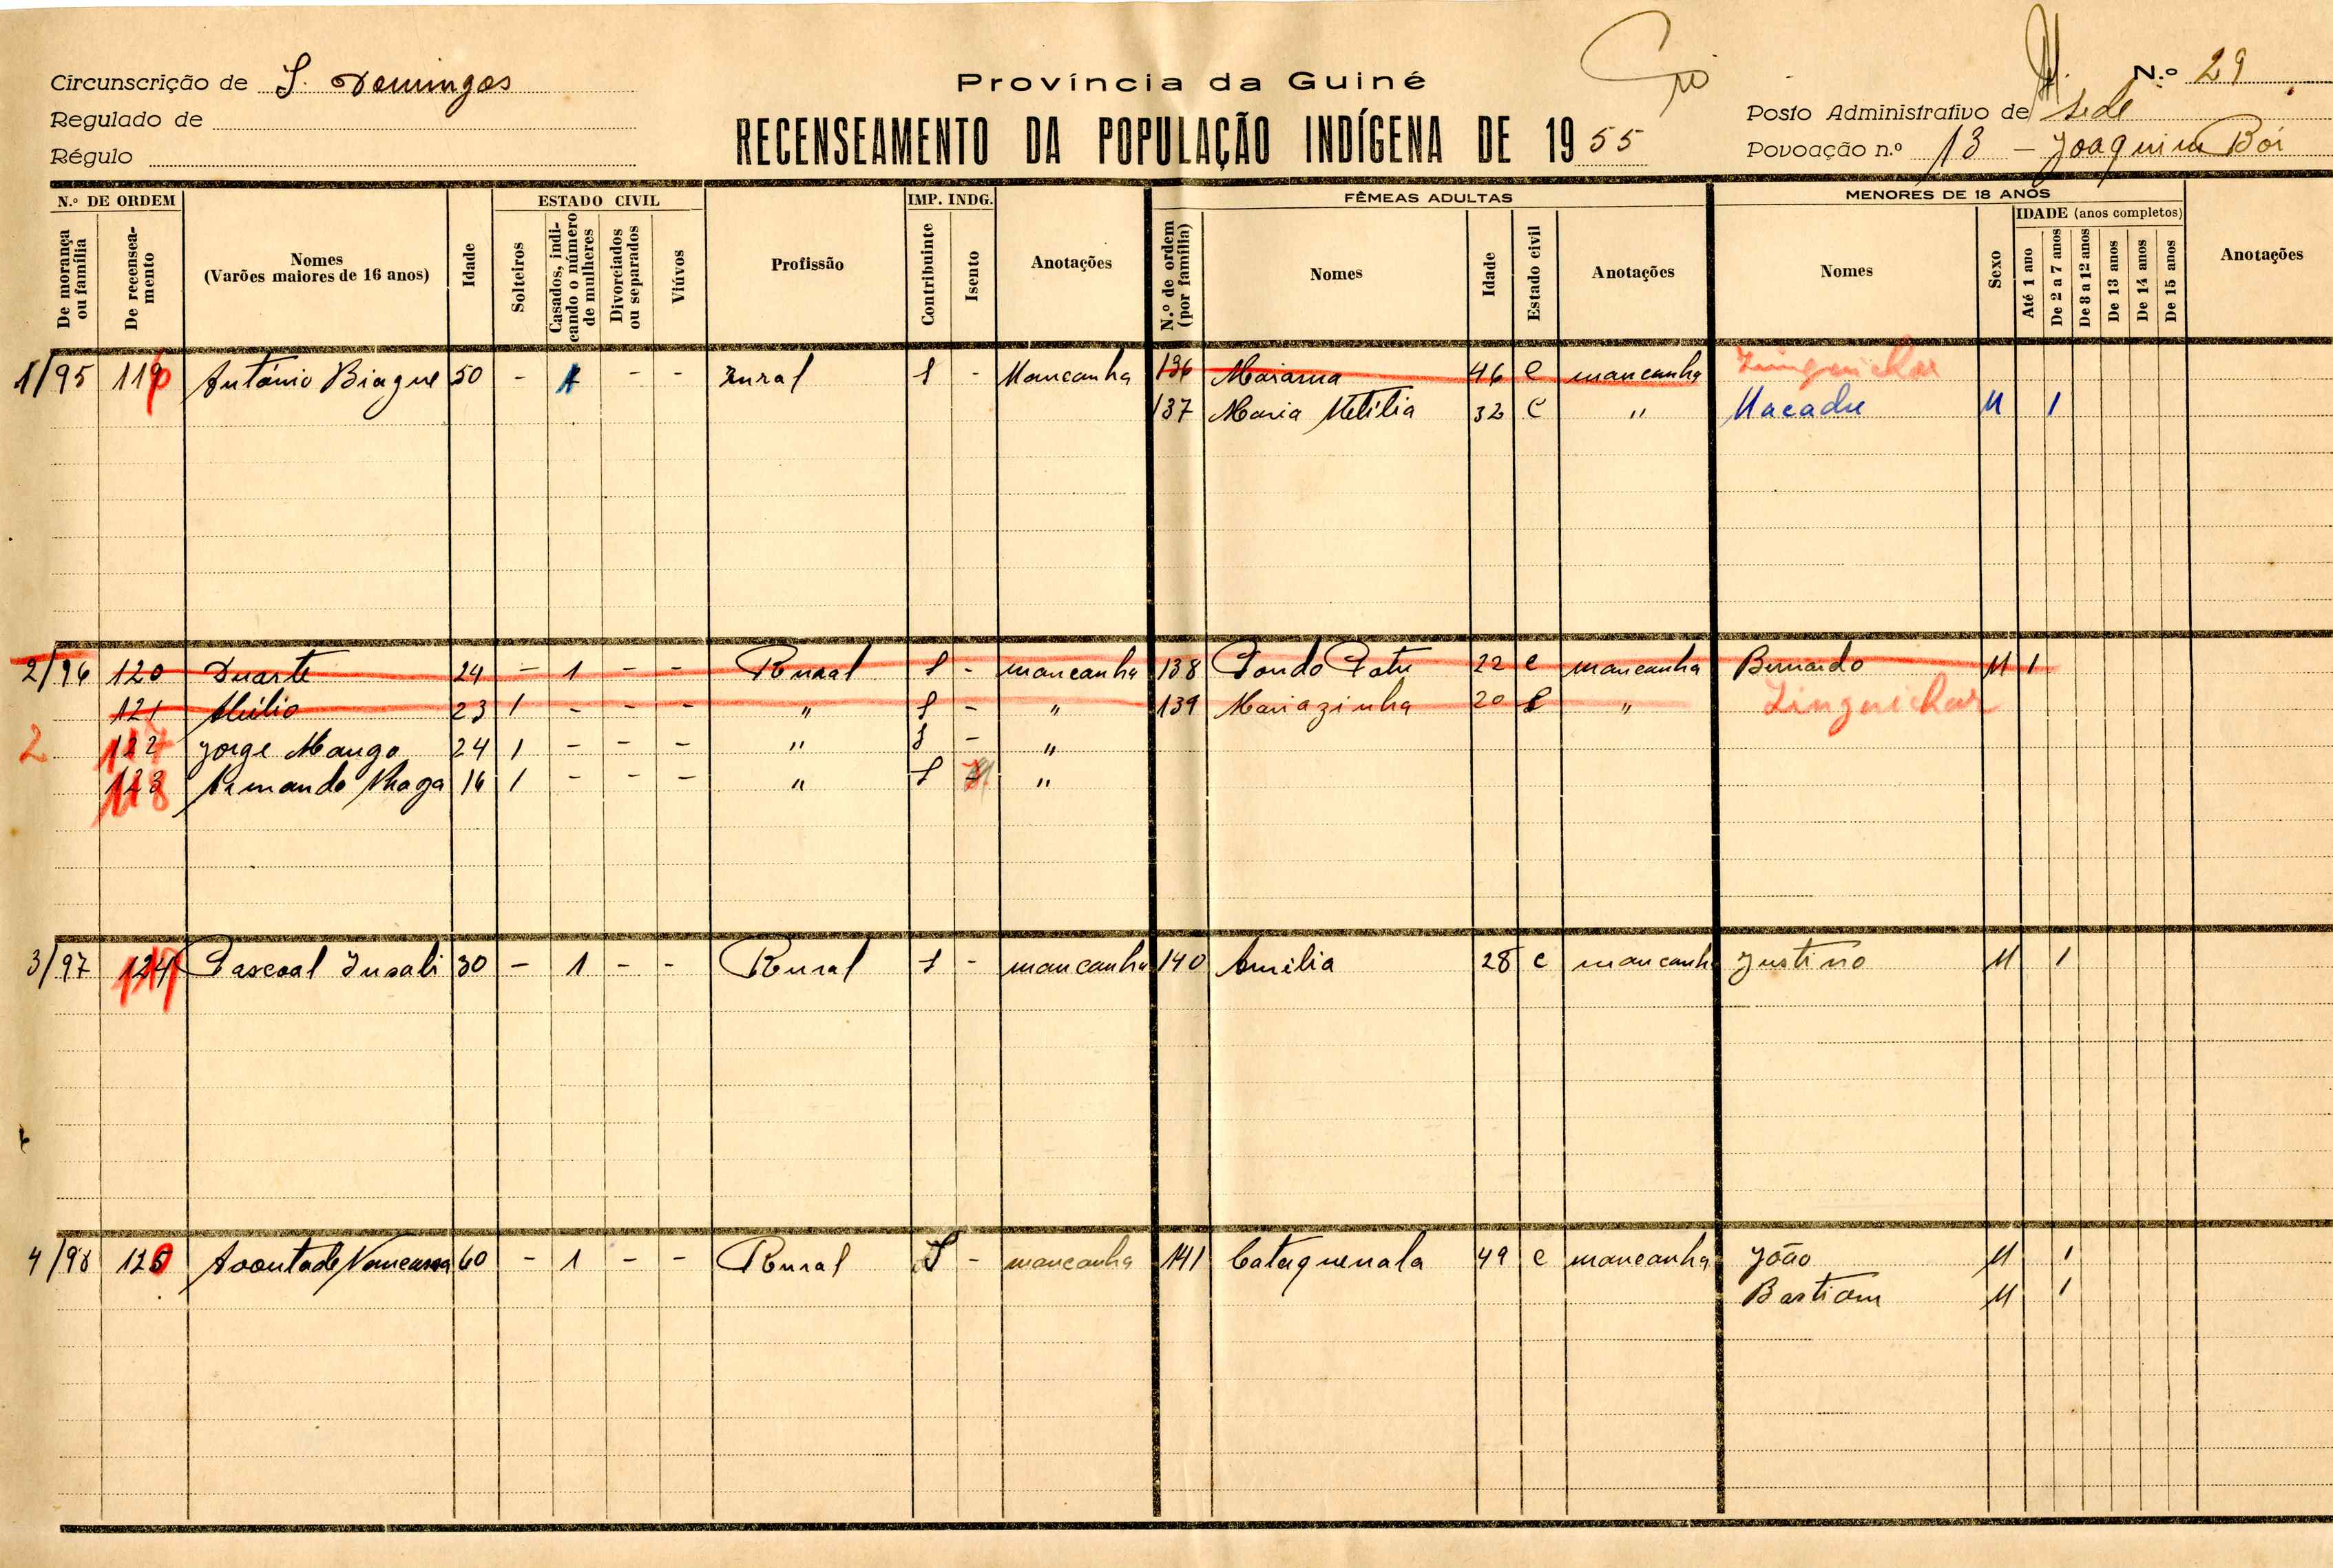 Circunscrição de S. Domingos
Regulado de
Régulo
Província da Guiné
RECENSEAMENTO DA POPULAÇÃO INDÍGENA DE 1955
N.º 29
Posto Administrativo de Sede
Povoação n.º 13 - Joaquim Bói
N.º DE ORDEM
De morança ou família
De recenseamento
Nomes
(Varões maiores de 16 anos)
Idade
ESTADO CIVIL
Solteiros
Casados, indicando o número de mulheres
Divorciados ou separados
Viúvos
Profissão
IMP. INDG.
Contribuinte
Isento
Anotações
FÊMEAS ADULTAS
N.º de ordem (por família)
Nomes
Idade
Estado civil
Anotações
MENORES DE 18 ANOS
Nomes
Sexo
IDADE (anos completos)
Até 1 ano
De 2 a 7 anos
De 8 a 12 anos
De 13 anos
De 14 anos
De 15 anos
Anotações
1/95 António Biague 50 - 1 - - Rural S - Mancanha 136 Mariama 46 C mancanha Zinguichor
137 Maria 32 C " Macadu M 1
2/96 120 Duarte 24 - 1 - - Rural S - mancanha 138 22 C mancanha Bernardo M 1
121 23 1 - - - " S - " 139 Mariazinha 20 " Zinguichor
2 122 117 Jorge Mango 24 1 - - - " S - "
123 118 Armando 16 1 - - - " S "
3/97 124 Pascoal 30 - 1 - - Rural S - mancanha 140 Amélia 28 C mancanha Justino M 1
4/98 60 - 1 - - Rural S - mancanha 141 49 C mancanha João M 1
Bastiam M 1